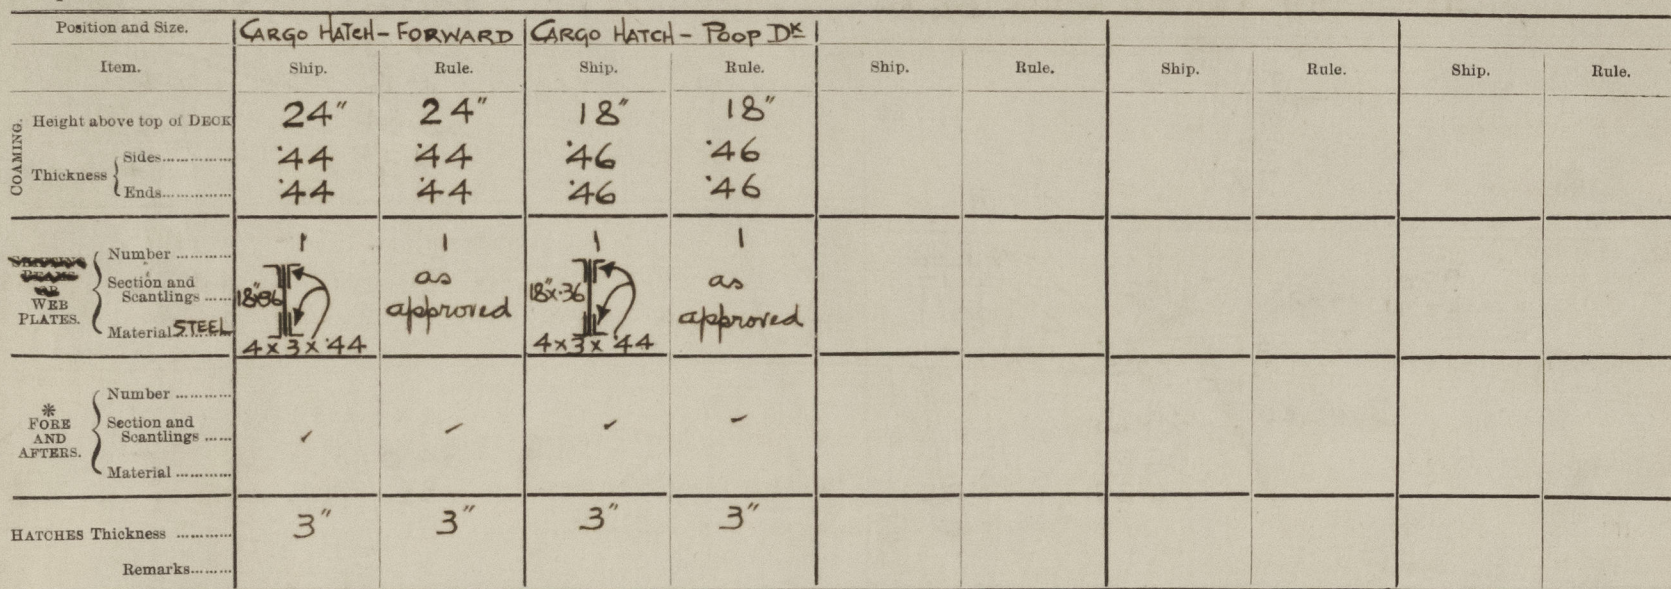 Position and Size. CARGO HATCH - FORWARD CARGO HATCH - POOP DK
Item. Ship. Rule. Ship. Rule. Ship. Rule. Ship. Rule. Ship. Rule.
COAMING.
Height above top of DECK 24" 24" 18" 18"
Thickness
Sides............... .44 .44 .46 .46
Ends............... .44 .44 .46 .46
WEB PLATES.
Number ............ 1 1 1 1
Section and Scantlings ...... 18"x.36 4x3x.44 as approved 18"x.36 4x3x.44 as approved
Material STEEL
* FORE AND AFTERS.
Number ............
Section and
Scantlings ......
Material ............
HATCHES Thickness ............ 3" 3" 3" 3"
Remarks.........